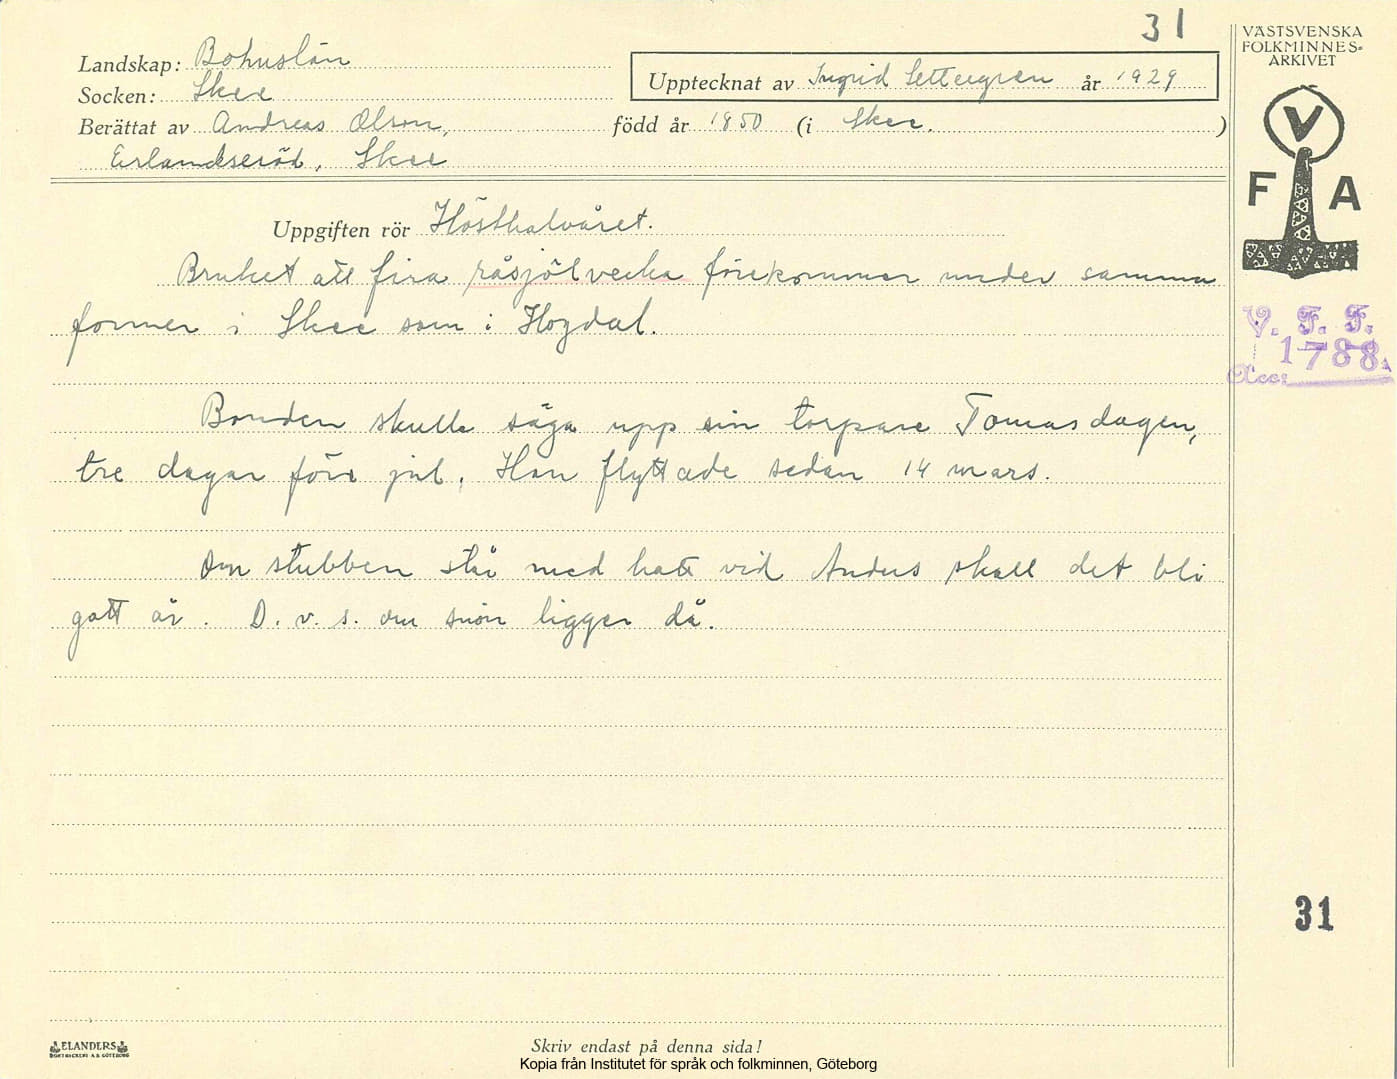 31
VÄSTSVENSKA
FOLKMINNES-
ARKIVET
Landskap: Bohuslän
Upptecknat av Ingrid Settergren år 1929
Socken: Skee
Berättat av Andreas Olson, född år 1850 (i Skee. )
Erlandseröd, Skee
V
F A
Uppgiften rör Hösthalvåret.
Bruket att fira råsjölvecka förekommer under samma
former i Skee som i Hogdal.
V. F. F.
1788
Acc:
Bonden skulle säga upp sin torpare Tomasdagen,
tre dagar före jul. Han flyttade sedan 14 mars.
Om stubben står med hatt vid Anders skall det bli
gott år. D. v. s. om snön ligger då.
31
ELANDERS
BOKTRYCKERI A.B. GÖTEBORG
Skriv endast på denna sida!
Kopia från Institutet för språk och folkminnen, Göteborg